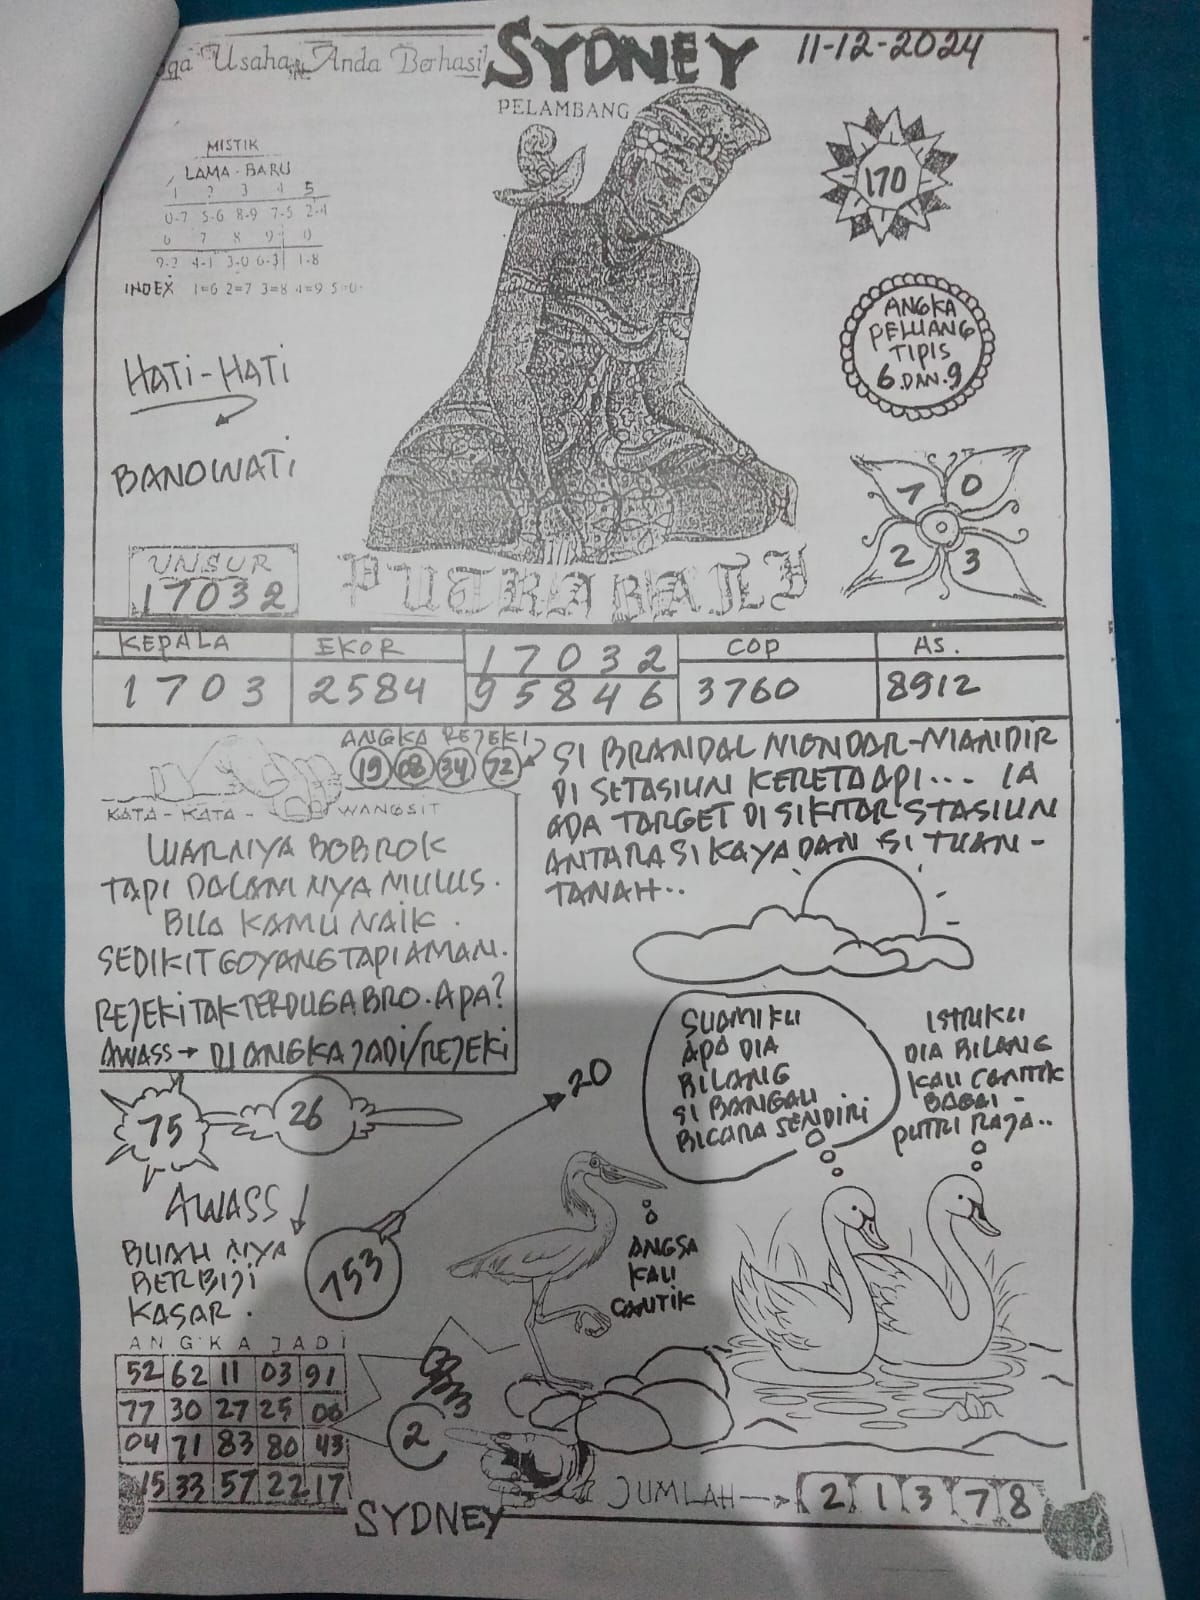 Usaha Anda Berhasil
SYDNEY
11-12-2024
PELAMBANG
MISTIK
LAMA - BARU
1 2 3 4 5
0-7 5-6 8-9 7-5 2-4
6 7 8 9 0
9-2 4-1 3-0 6-3 1-8
INDEX 1=6 2=7 3=8 4=9 5=0
170
ANGKA
PELUANG
TIPIS
6 DAN 9
HATI-HATI
BANOWATI
7 0
2 3
UNSUR
17032
PUTRA BALI
KEPALA
1703
EKOR
2584
17032
95846
COP
3760
AS.
8912
ANGKA REJEKI
19 08 34 72
KATA - KATA - WANGSIT
LUARNYA BOBROK
TAPI DALAM NYA MULUS.
BILA KAMU NAIK.
SEDIKIT GOYANG TAPI AMAN.
REJEKI TAK TERDUGA BRO. APA?
AWASS → DI ANGKA JADI/REJEKI
SI BRANDAL MONDAR-MANDIR
DI SETASIUN KERETA API.... IA
ADA TARGET DI SIKITAR STASIUN
ANTARA SI KAYA DAN SI TUAN-
TANAH..
75
26
20
AWASS
BUAH NYA
BERBIJI
KASAR.
753
SUAMIKU
APA DIA
BILANG
SI BANGAU
BICARA SENDIRI
ISTRIKU
DIA BILANG
KAU CANTIK
BAGAI-
PUTRI RAJA..
ANGSA
KAU
CANTIK
ANGKA JADI
52 62 11 03 91
77 30 27 25 06
04 71 83 80 43
15 33 57 22 17
2
JUMLAH → 2 1 3 7 8
SYDNEY